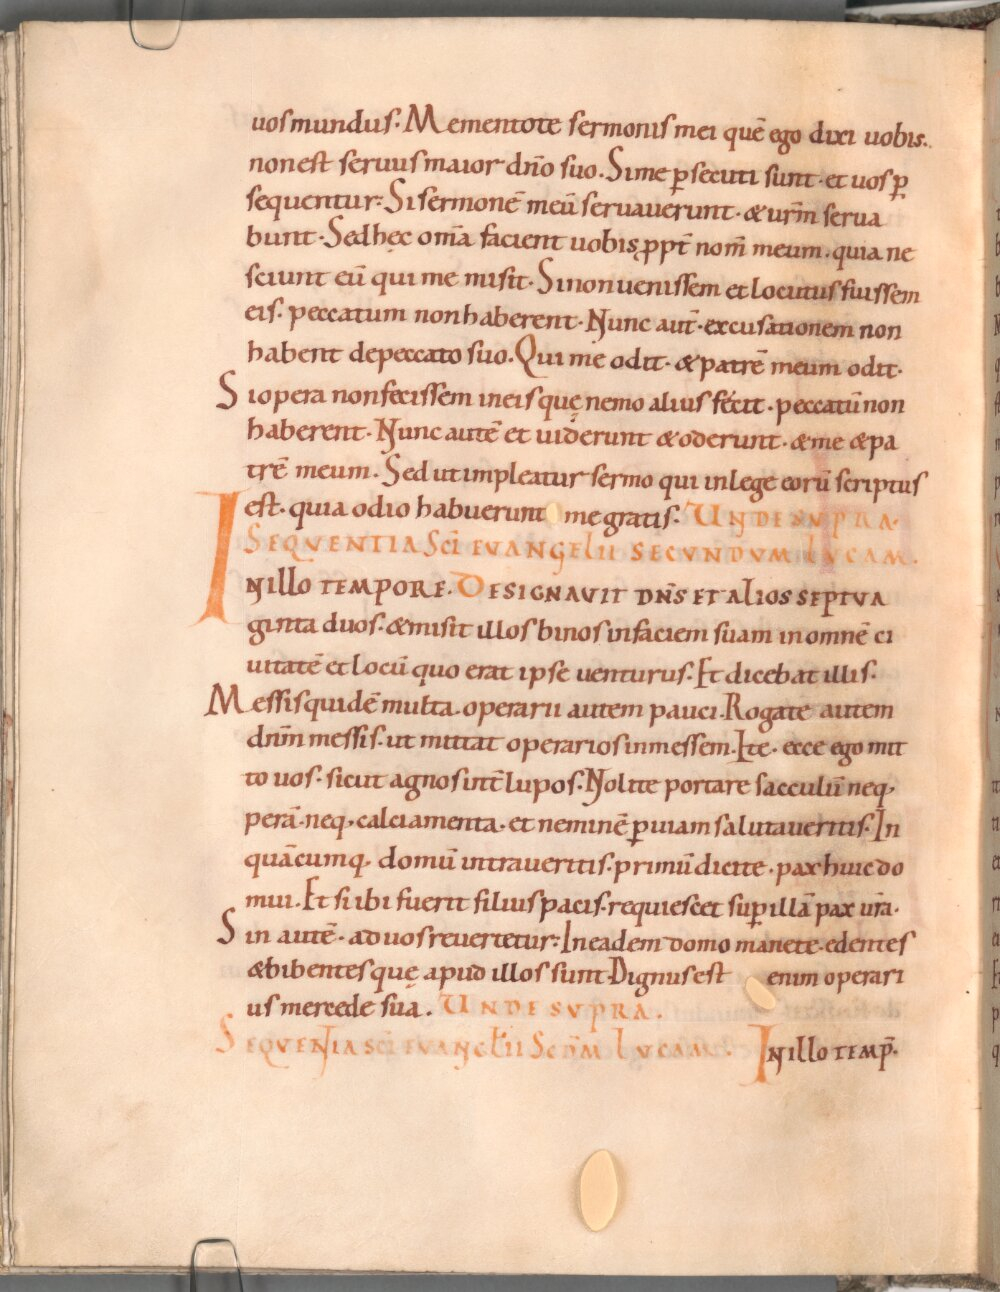 uos mundus. Mementote sermonis mei quē ego dixi uobis.
non est seruus maior dn̄o suo. Si me ꝑsecuti sunt. et uos ꝑ
sequentur: Si sermonē meū seruauerunt. & ur̄m serua
bunt. Sed hęc om̄a facient uobis ꝓpt̄ nom̄ meum. quia ne
sciunt eū qui me misit. Si non uenissem et locutus fuissem
eis. peccatum non haberent. Nunc aut̄. excusationem non
habent de peccato suo. Qui me odit. & patrē meum odit.
Si opera non fecissem in eis quę nemo alius fecit. peccatū non
haberent. Nunc autē et uiderunt & oderunt. & me & pa
trē meum. Sed ut impleatur sermo qui in lege eorū scriptus
est. quia odio habuerunt me gratis. UNDE SUPRA.
SEQUENTIA SCĪ EUANGELII SECUNDUM LUCAM.
IN ILLO TEMPORE. DESIGNAUIT DN̄S ET ALIOS SEPTUA
ginta duos. & misit illos binos in faciem suam in omnē ci
uitatē et locū quo erat ipse uenturus. Et dicebat illis.
Messis quidē multa. operarii autem pauci. Rogate autem
dn̄m messis. ut mittat operarios in messem. Ite. ecce ego mit
to uos. sicut agnos int̄ lupos. Nolite portare sacculū neq,
perā. neq, calciamenta. et neminē ꝑ uiam salutaueritis. In
quācumq, domū intraueritis. primū dicite. pax huic do
mui. Et si ibi fuerit filius pacis. requiescet suꝑ illā pax ur̄a.
Sin autē. ad uos reuertetur: In eadem domo manete. edentes
& bibentes quę apud illos sunt. Dignus est enim operari
us mercede suā. UNDE SUPRA.
SEQUENTIA SCĪ EUANGĒLII SCD̄M LUCAM. IN ILLO TEMP̄.